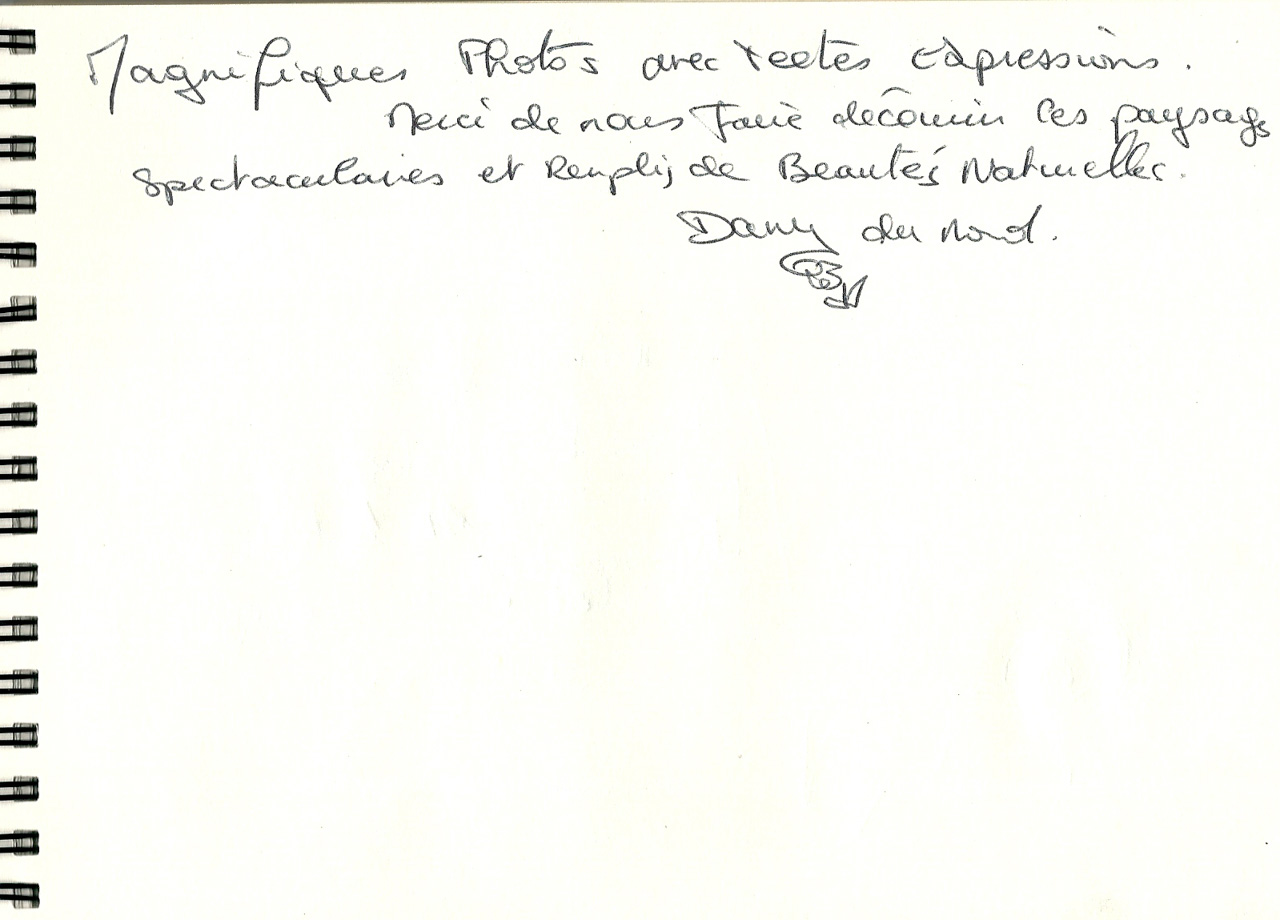 Magnifiques Photos avec textes expressions.
Merci de nous faire découvrir ces paysages
spectaculaires et Remplis de Beautés Naturelles.
Dany du Nord.